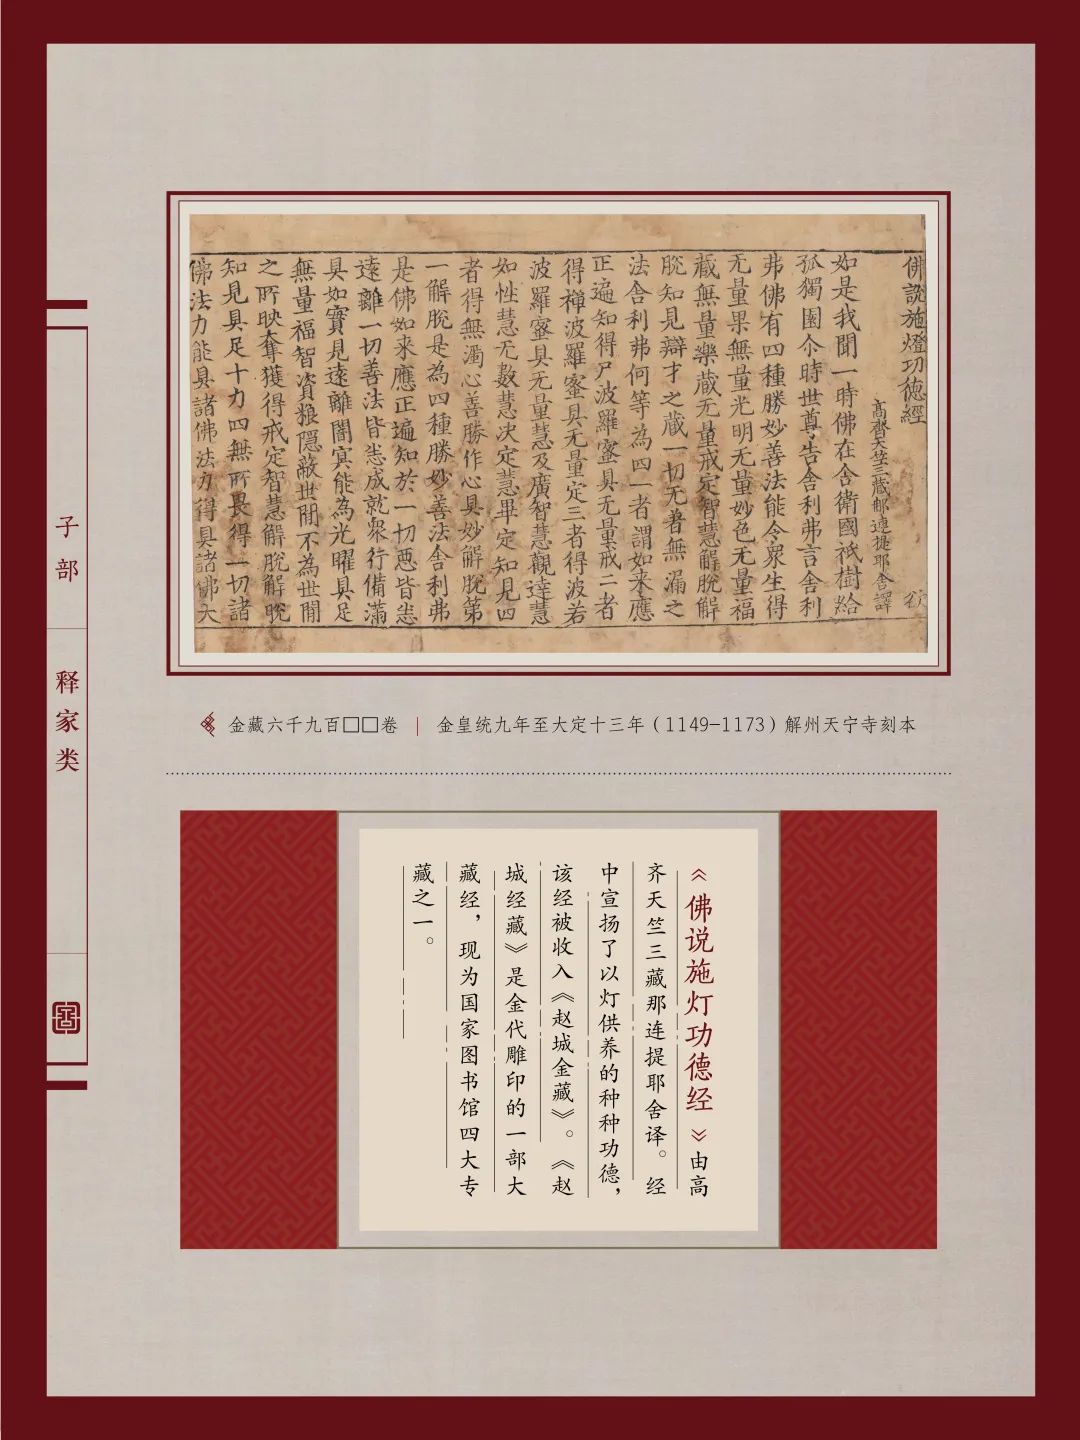 佛說施燈功德經
高齊天竺三藏那連提耶舍譯
如是我聞一時佛在舍衛國祇樹給
孤獨園尒時世尊告舍利弗言舍利
弗佛有四種勝妙善法能令衆生得
无量果無量光明无量妙色无量福
藏無量樂藏无量戒定智慧解脫解
脫知見辯才之藏一切无著無漏之
法舍利弗何等為四一者謂如来應
正遍知得尸波羅蜜具无量戒二者
得禅波羅蜜具无量定三者得波若
波羅蜜具无量慧及廣智慧觀達慧
如性慧无数慧决定慧畢定知見四
者得無濁心善勝作心具妙解脫第
一解脫是為四種勝妙善法舍利弗
是佛如来應正遍知於一切惡皆悉
遠離一切善法皆悉成就衆行備滿
具如寶見遠離闇冥能為光曜具足
無量福智資粮隱蔽世間不為世間
之所映奪獲得戒定智慧解脫解脫
知見具足十力四無所畏得一切諸
佛法力能具諸佛法力得具諸佛大
子部
释家类
金藏六千九百□□卷 | 金皇统九年至大定十三年（1149-1173）解州天宁寺刻本
《佛说施灯功德经》由高
齐天竺三藏那连提耶舍译。经
中宣扬了以灯供养的种种功德，
该经被收入《赵城金藏》。《赵
城经藏》是金代雕印的一部大
藏经，现为国家图书馆四大专
藏之一。